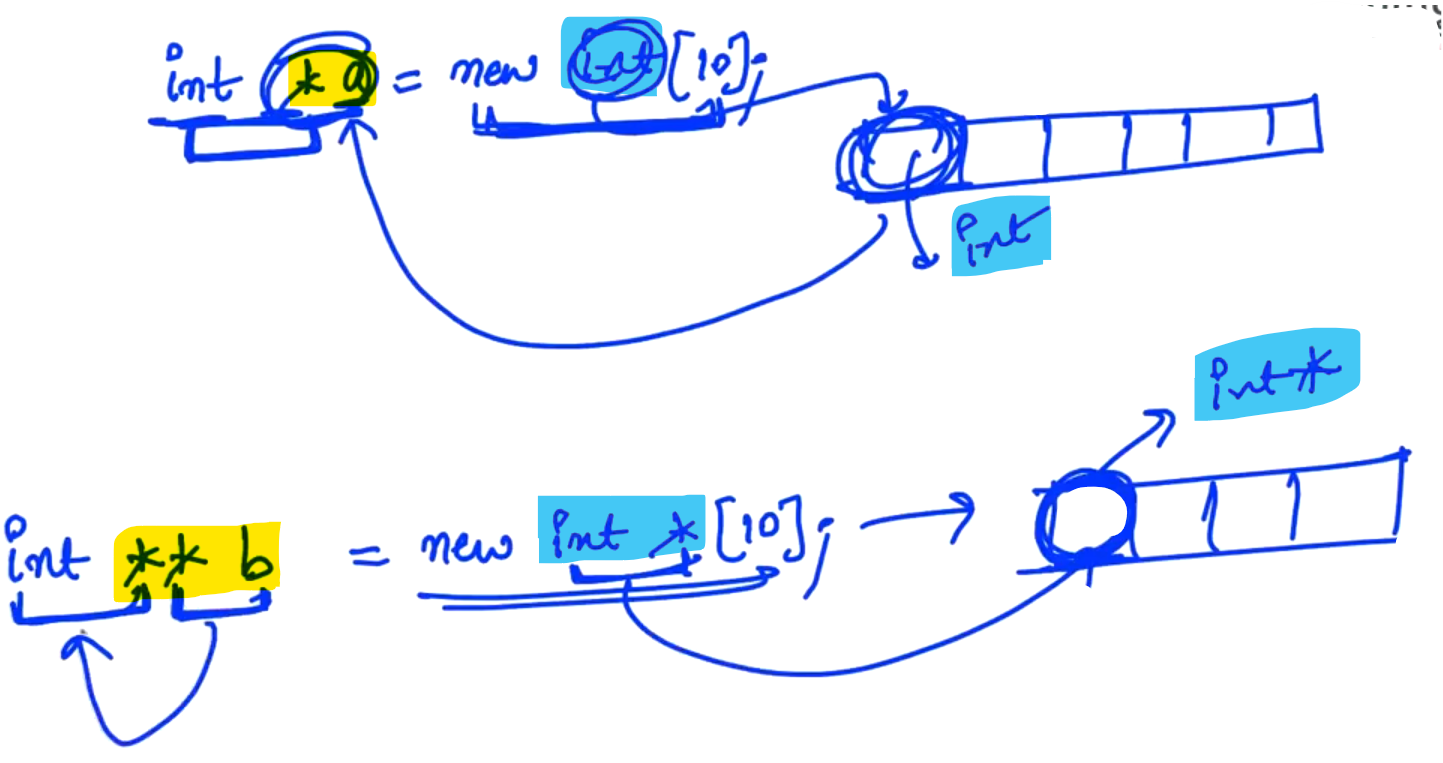 int *a = new int [10];
int
int*
int **b = new int * [10];